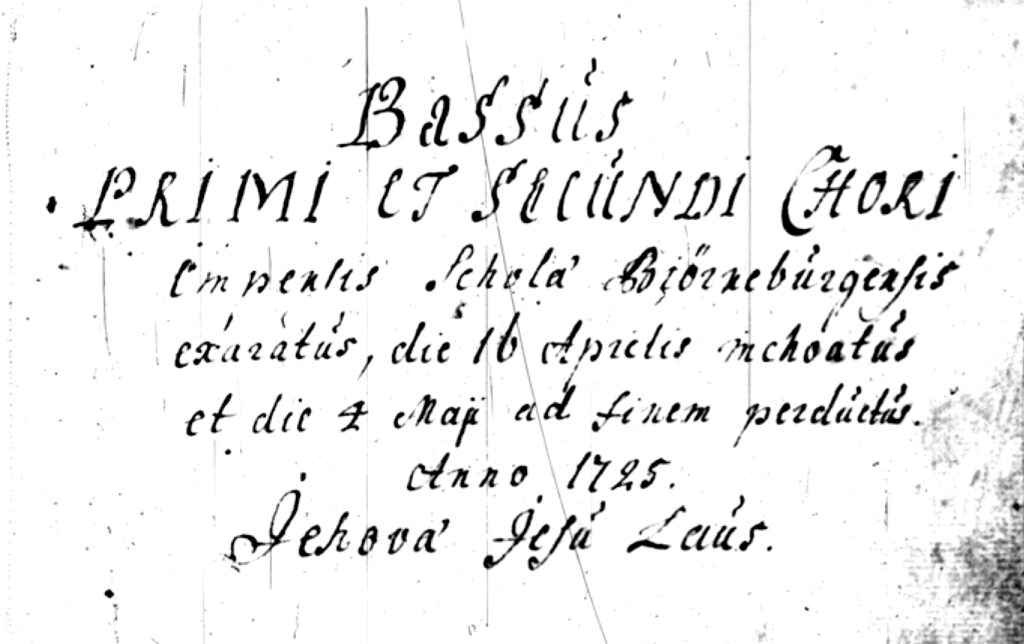 Bassus
PRIMI ET SECUNDI CHORI
Empensis Schola Biörneburgensis
exaratus, die 16 Aprilis inchoatus
et die 4 Maji ad finem perductus.
Anno 1725.
Jehova Jesu Laus.